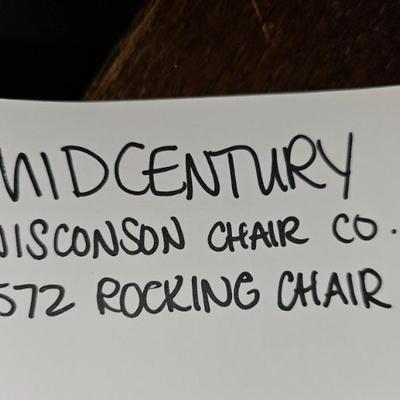 MIDCENTURY
WISCONSON CHAIR CO.
572 ROCKING CHAIR